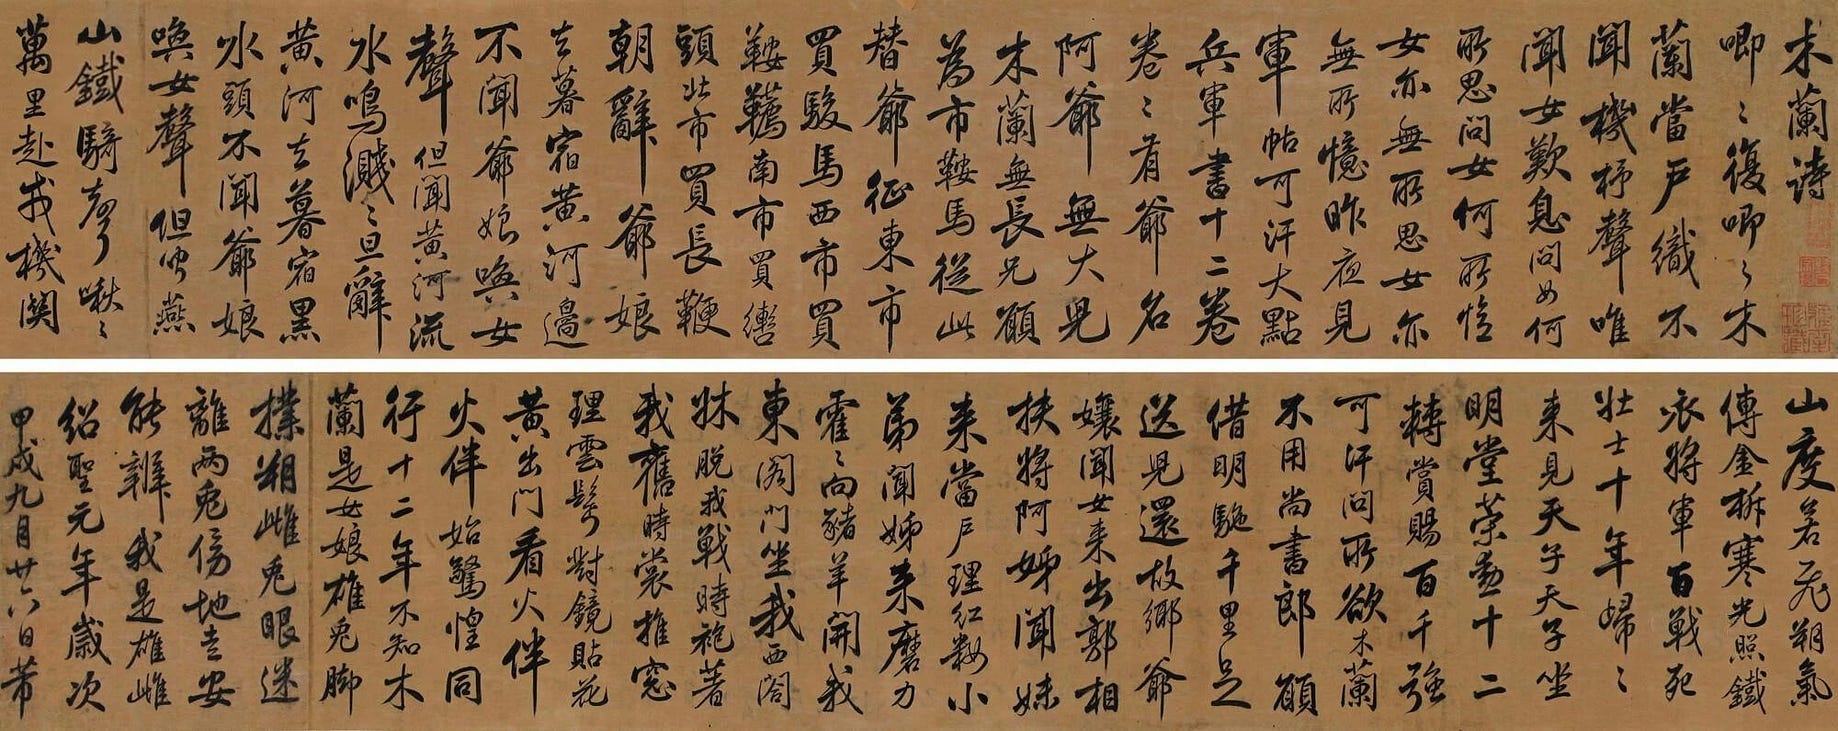 木蘭詩
唧〻復唧〻木
蘭當戶織不
聞機杼聲唯
聞女歎息問女何
所思問女何所憶
女亦無所思女亦
無所憶昨夜見
軍帖可汗大點
兵軍書十二卷
卷〻有爺名
阿爺無大兒
木蘭無長兄願
為市鞍馬從此
替爺征東市
買駿馬西市買
鞍韉南市買轡
頭北市買長鞭
朝辭爺娘
去暮宿黃河邊
不聞爺娘喚女
聲但聞黃河流
水鳴濺〻旦辭
黃河去暮宿黑
水頭不聞爺娘
喚女聲但聞燕
山鐵騎聲啾〻
萬里赴戎機関
山度若飛朔氣
傳金柝寒光照鐵
衣將軍百戰死
壯士十年歸〻
來見天子天子坐
明堂策勳十二
轉賞賜百千強
可汗問所欲木蘭
不用尚書郎願
借明駞千里足
送兒還故鄉爺
孃聞女來出郭相
扶將阿姊聞妹
來當戶理紅粧小
弟聞姊來磨刀
霍〻向豬羊開我
東閣門坐我西閣
牀脫我戰時袍著
我舊時裳推窓
理雲鬢對鏡貼花
黃出門看火伴
火伴始驚惶同
行十二年不知木
蘭是女娘雄兔腳
撲朔雌兔眼迷
離兩兔傍地走安
能辨我是雄雌
紹聖元年歲次
甲戌九月廿六日芾